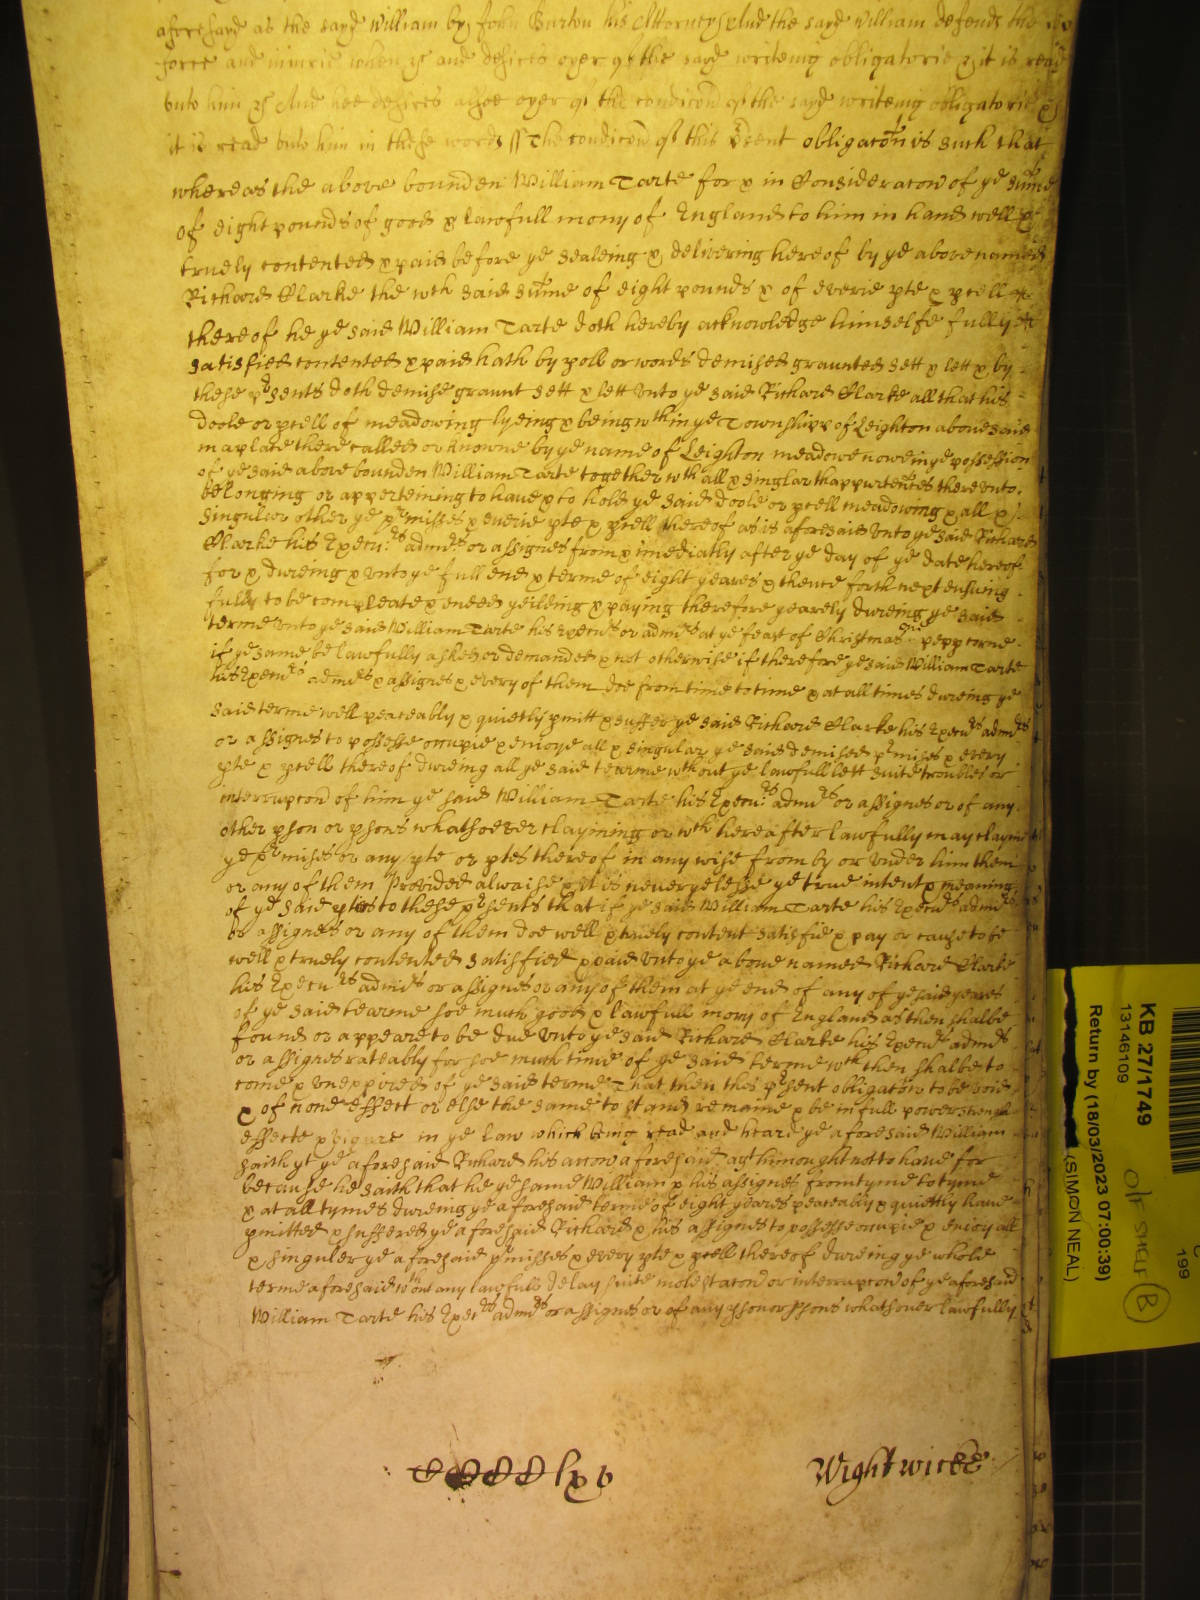 aforesayd as the sayd William by John Burton his Attorney And the sayd William defends the
force and iniurie when &c and desires oyer of the sayd writeing obligatorie & it is read
vnto him &c And hee desires alsoe oyer of the condicon of the sayd writeing obligatorie &
it is read vnto him in these words ss The condicon of this psent obligacon is such that
whereas the above bounden William Tarte for & in Consideracon of ye sume
of eight pounds of good & lawfull mony of England to him in hand well &
truely contented & paid before ye sealeing & delivering hereof by ye above named
Richard Clarke the wch said sume of eight pounds & of everie pte & pcell
thereof he ye said William Tarte doth hereby acknowledge himselfe fully
satisfied contented & paid hath by poll or words demised graunted sett & lett & by
these psents doth demise graunt sett & lett vnto ye said Richard Clarke all that his
doole or pcell of meadowing lyeing & being wthin ye Townshipp of Leighton abovesaid
in a place there called or knowne by ye name of Leighton meadowe nowe in ye possession
of ye said above bounden William Tarte together wth all & singlar thappurtences therevnto
belonging or apperteining to have & to hold ye said doole or pcell meadowing & all &
singuler other ye pmisses & everie pte & pcell thereof as is aforesaid vnto ye said Richard
Clarke his Execu:rs admrs or assignes from & imediatly after ye day of ye date hereof
for & dureing & vnto ye full end & terme of eight yeares & thence forth next ensuing
fully to be compleate & ended yeilding & paying therefore yearely dureing ye said
terme vnto ye said William Tarte his Execurs or admrs at ye feast of Christmas one pepp corne
if ye same be lawfully asked or demanded & not otherwise if therefore ye said William Tarte
his Execurs admrs & assignes & every of them doe from time to time & at all times dureing ye
said terme well peaceably & quietly pmitt & suffer ye said Richard Clarke his Execurs admrs
or assignes to possesse occupie & enioye all & singular ye said demised pmises & every
pte & pcell thereof dureing all ye said tearme wthout ye lawfull lett suite troubles or
interrupcon of him ye said William Tarte his Execu:rs admrs or assignes or of any
other pson or psons whatsoever clayming or wch hereafter lawfully may clayme
ye pmises or any pte or ptes thereof in any wise from by or vnder him them
or any of them Provided alwaise & it is neverye lesse ye true intent & meaning
of ye said pties to these psents that if ye said William Tarte his Execurs admrs
or assignes or any of them doe well & truely content satisfie & pay or cause to be
well & truely contented satisfied & paid vnto ye above named Richard Clarke
his Execurs admrs or assignes or any of them at ye end of any of ye said yeares
of ye said tearme soe much good & lawfull mony of England as then shalbe
found or appeare to be due vnto ye said Richard Clarke his Execurs admrs
or assignes rateably for soe much time of ye said terme wch then shalbe to
come & vnexpired of ye said terme That then this psent obligacon to be void
& of none effect or else the same to stand remaine & be in full power strength
effecte & vigure in ye law which being read and heard ye aforesaid William
saith yt ye aforesaid Richard his accon aforesaid agt him ought not to have for
because he saith that he ye same William & his assignes from tyme to tyme
& at all tymes dureing ye aforesaid terme of eight yeares peaceably & quietly have
pmitted & suffered ye aforesaid Richard & his assignes to possesse occupie & enioy all
& singuler ye aforesaid pmisses & every pte & pcell thereof dureing ye whole
terme aforesaid wthout any lawfull delay suite molestacon or interrupcon of ye aforesaid
William Tarte his Execrs admrs or assignes or of any pson or psons whatsoever lawfully
lxv
Wightwicke
KB 27/1749
13146109
Return by (18/03/2023 07:00:39)
(SIMON NEAL)
O/F SHELF B
199